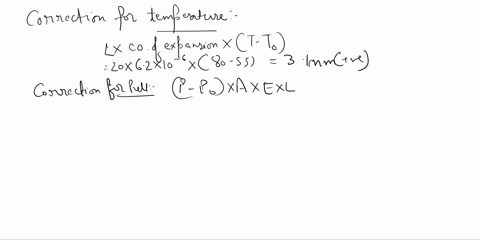 Correction for temperature:-
L x co. of expansion x (T-T₀)
=20x6.2x10⁻⁶x(80-55) = 3.1mm(+ve)
Correction for Pull:- (P-P₀)xAxExL